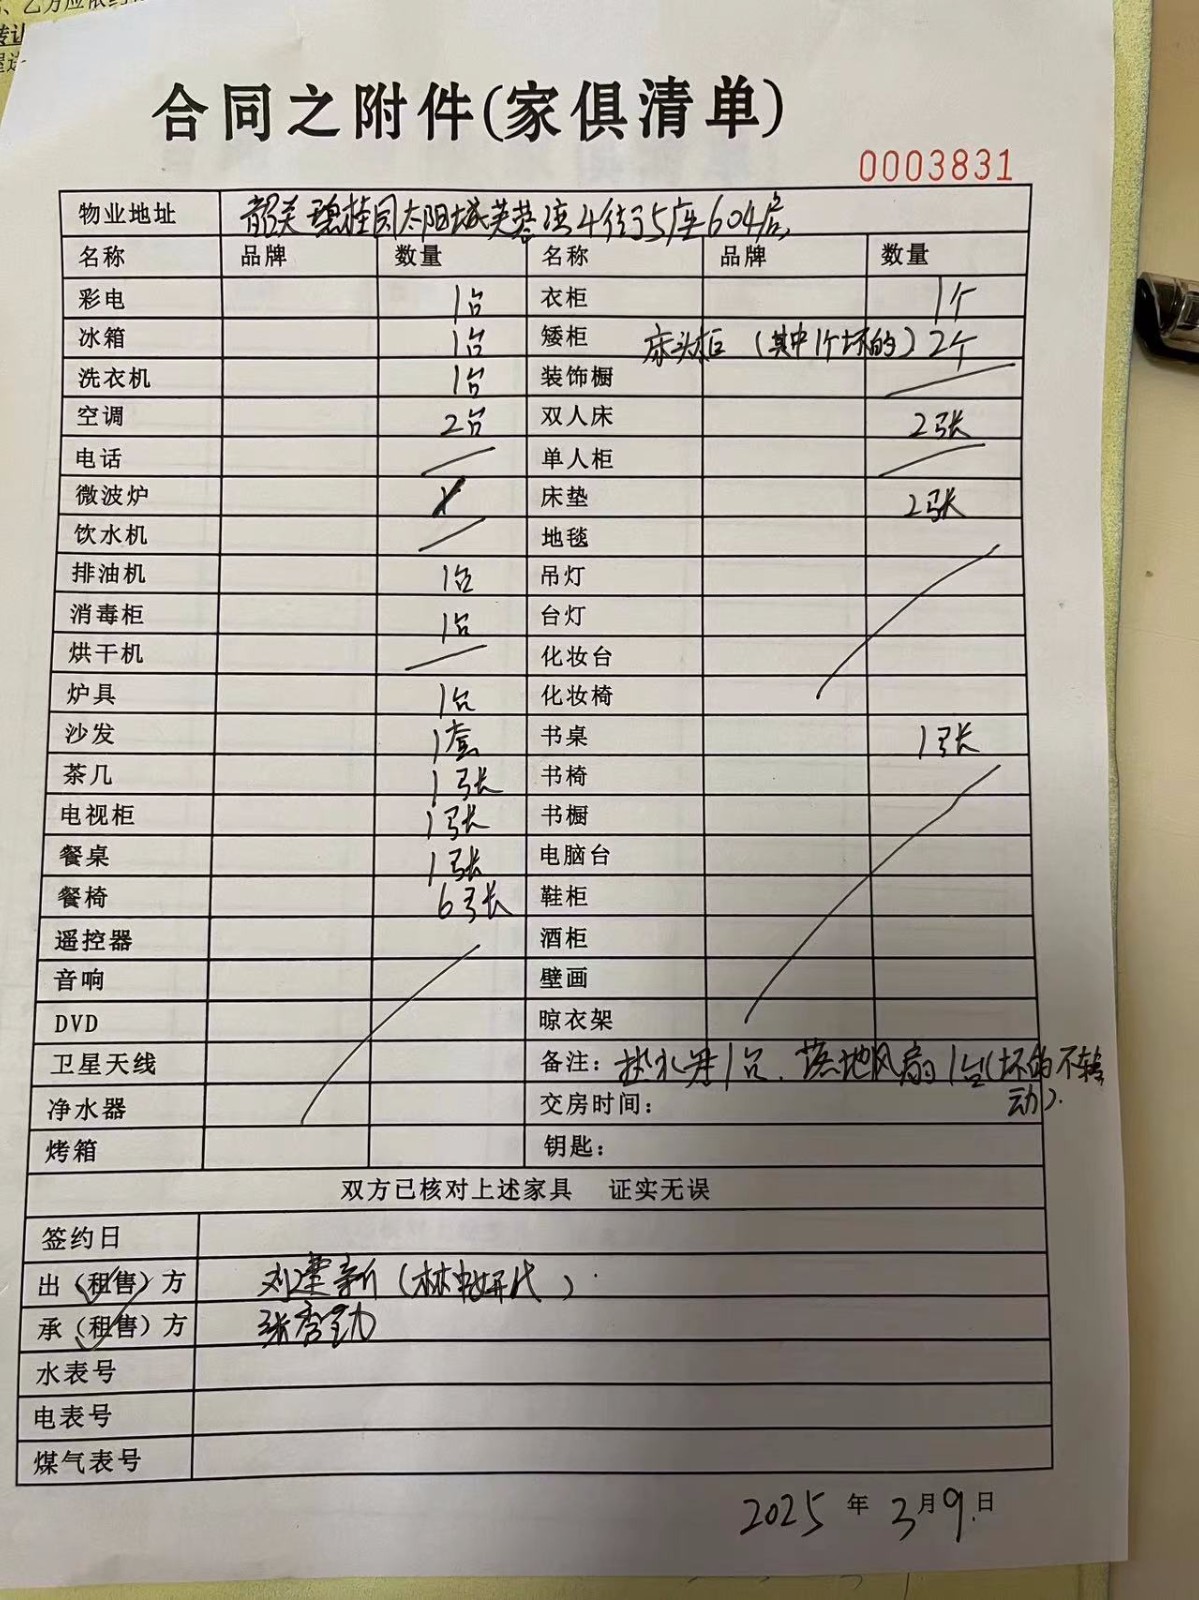 、乙方应依约
转让
合同之附件(家俱清单)
0003831
物业地址 韶关碧桂园太阳城芙蓉湾4街5座604房
名称 品牌 数量 名称 品牌 数量
彩电 1台 衣柜 1个
冰箱 1台 矮柜 床头柜(其中1个坏的)2个
洗衣机 1台 装饰橱
空调 2台 双人床 2张
电话 单人柜
微波炉 床垫 2张
饮水机 地毯
排油机 1台 吊灯
消毒柜 1台 台灯
烘干机 化妆台
炉具 1台 化妆椅
沙发 1套 书桌 1张
茶几 1张 书椅
电视柜 1张 书橱
餐桌 1张 电脑台
餐椅 6张 鞋柜
遥控器 酒柜
音响 壁画
DVD 晾衣架
卫星天线 备注:热水器1台、落地风扇1台(坏的不转
动).
净水器 交房时间:
烤箱 钥匙:
双方已核对上述家具 证实无误
签约日
出(租售)方 刘建新(林 代)
承(租售)方 张秀勤
水表号
电表号
煤气表号
2025年3月9日